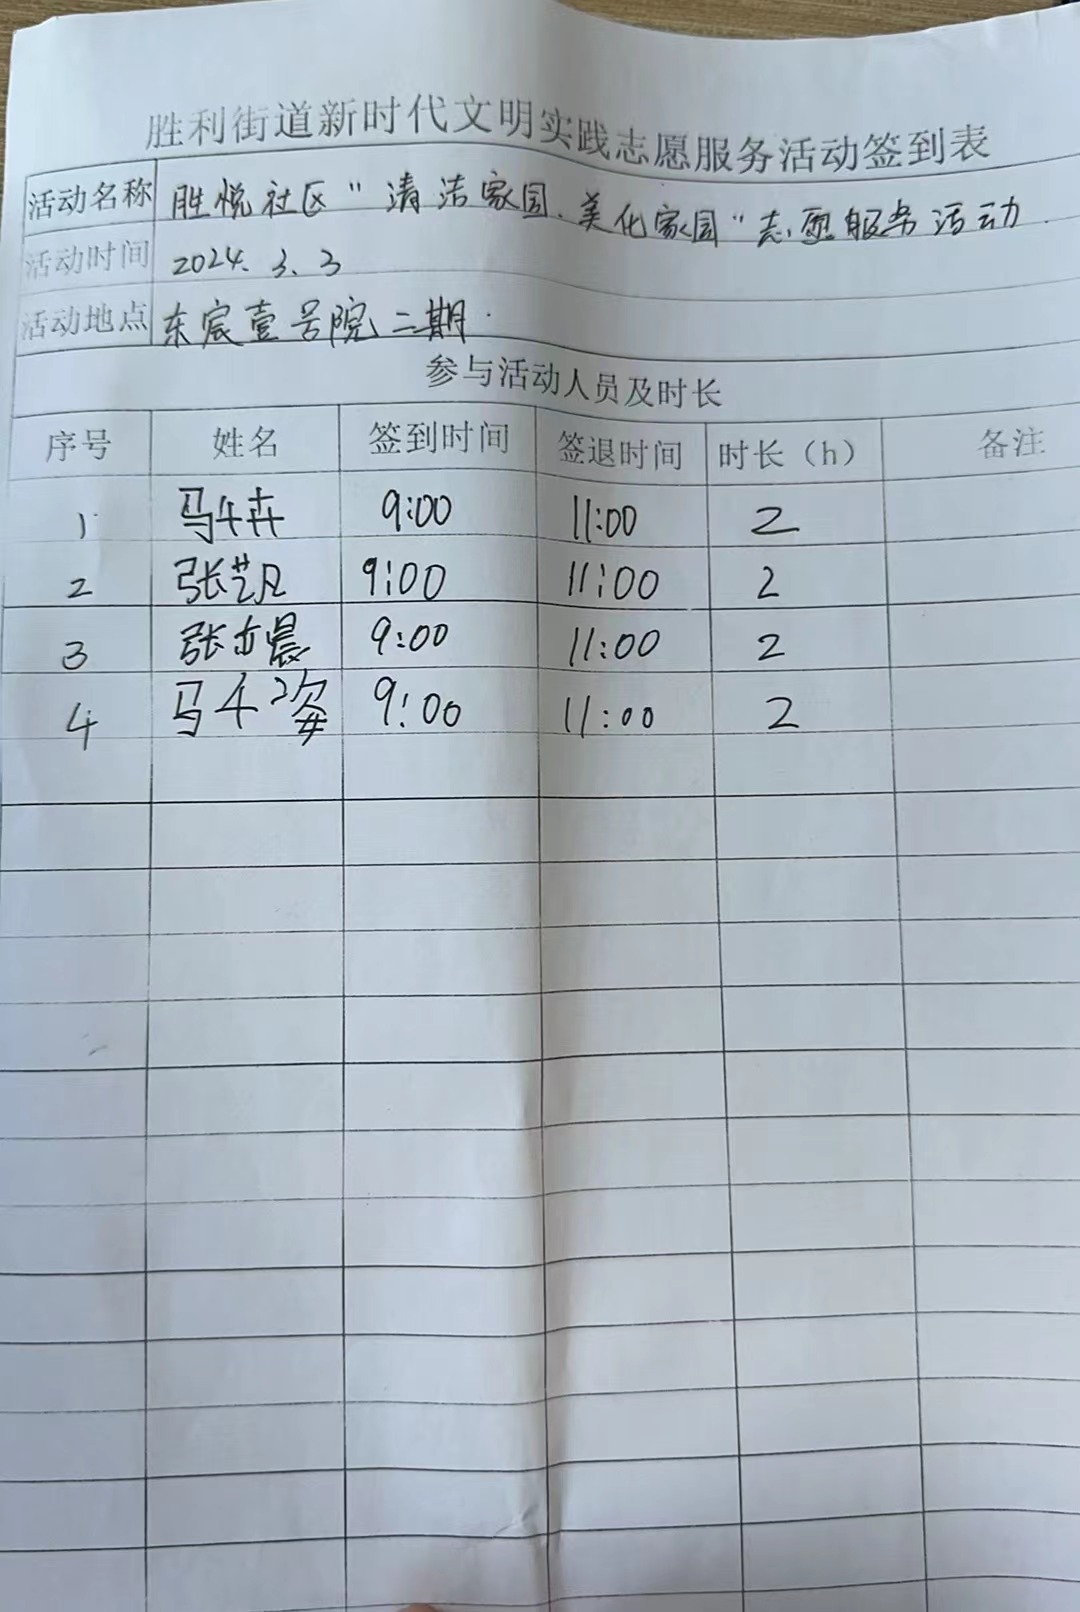 胜利街道新时代文明实践志愿服务活动签到表
活动名称 胜悦社区"清洁家园、美化家园"志愿服务活动.
活动时间 2024.3.3
活动地点 东宸壹号院二期.
参与活动人员及时长
序号 姓名 签到时间 签退时间 时长（h） 备注
1 马千卉 9:00 11:00 2
2 张艺凡 9:00 11:00 2
3 张亦晨 9:00 11:00 2
4 马千姿 9:00 11:00 2